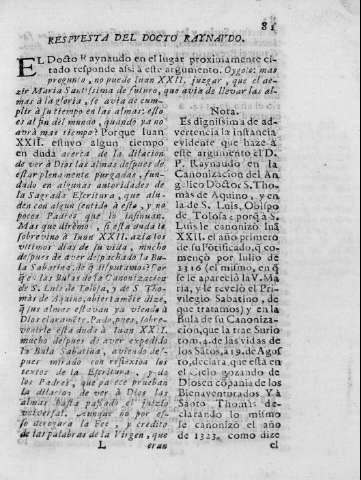 81
RESPUESTA DEL DOCTO RAYNAUDO.
EL Docto Raynaudo en el lugar proximamente ci-
tado responde assi à este argumento. Oygole: mas
pregunto, no puede Iuan XXII. juzgar, que el de-
zir Maria Santissima de futuro, que avia de llevar las al-
mas à la gloria, se avia de cum-
plir à su tiempo en las almas: esto
es al fin del mundo, quando ya no
avrà mas tiempo? Porque Iuan
XXII. estuvo algun tiempo
en duda acerca de la dilacion
de ver à Dios las almas despues de
estar plenamente purgadas, fun-
dado en algunas autoridades de
la Sagrada Escritura, que alu-
den con algun sentido à esto, y no
pocos Padres que lo insinuan.
Mas que dirèmos, si esta duda le
sobrevino à Iuan XXII. azia los
vltimos dias de su vida, mucho
despues de aver despachado la Bula
Sabatina, de q̃ disputamos? Por
que en las Bulas de la Canonizacion
de S. Luis de Tolosa, y de S. Tho-
màs de Aquino, abiertamẽte dize,
q̃ sus almas estavan ya viendo à
Dios claramẽte. Pudo, pues, sobre-
venirle esta duda à Iuan XXII.
mucho despues de aver expedido
la Bula Sabatina, aviendo des-
pues mirado con reflexion los
textos de la Escritura, y de
los Padres, que parece prueban
la dilacion de ver à Dios las
almas hasta passado el juizio
vniversal. Aunque no por es-
so derogara la Fee, y credito
de las palabras de la Virgen, que
L eran
Nota.
Es dignissima de ad-
vertencia la instancia
evidente que haze à
este argumento el D.
P. Raynaudo en la
Canonizacion del An-
gelico Doctor S. Tho-
màs de Aquino, y en
la de S. Luis, Obispo
de Tolosa: porq̃ à S.
Luis le canonizò Iuã
XXII. el año primero
de su Põtificado, q̃ co-
mençò por Iulio de
1316 (el mismo, en q̃
se le apareciò la V. Ma
ria, y le revelò el Pri-
vilegio Sabatino, de
que tratamos) y en la
Bula de su Canoniza-
cion, que la trae Surio
tom. 4. de las vidas de
los Sãtos, à 19. de Agos
to, declara, que està en
el Cielo gozando de
Dios en cõpañia de los
Bienaventorados. Y à
Santo Thomàs de-
clarando lo mismo
le canonizò el año
de 1323. como dize
el